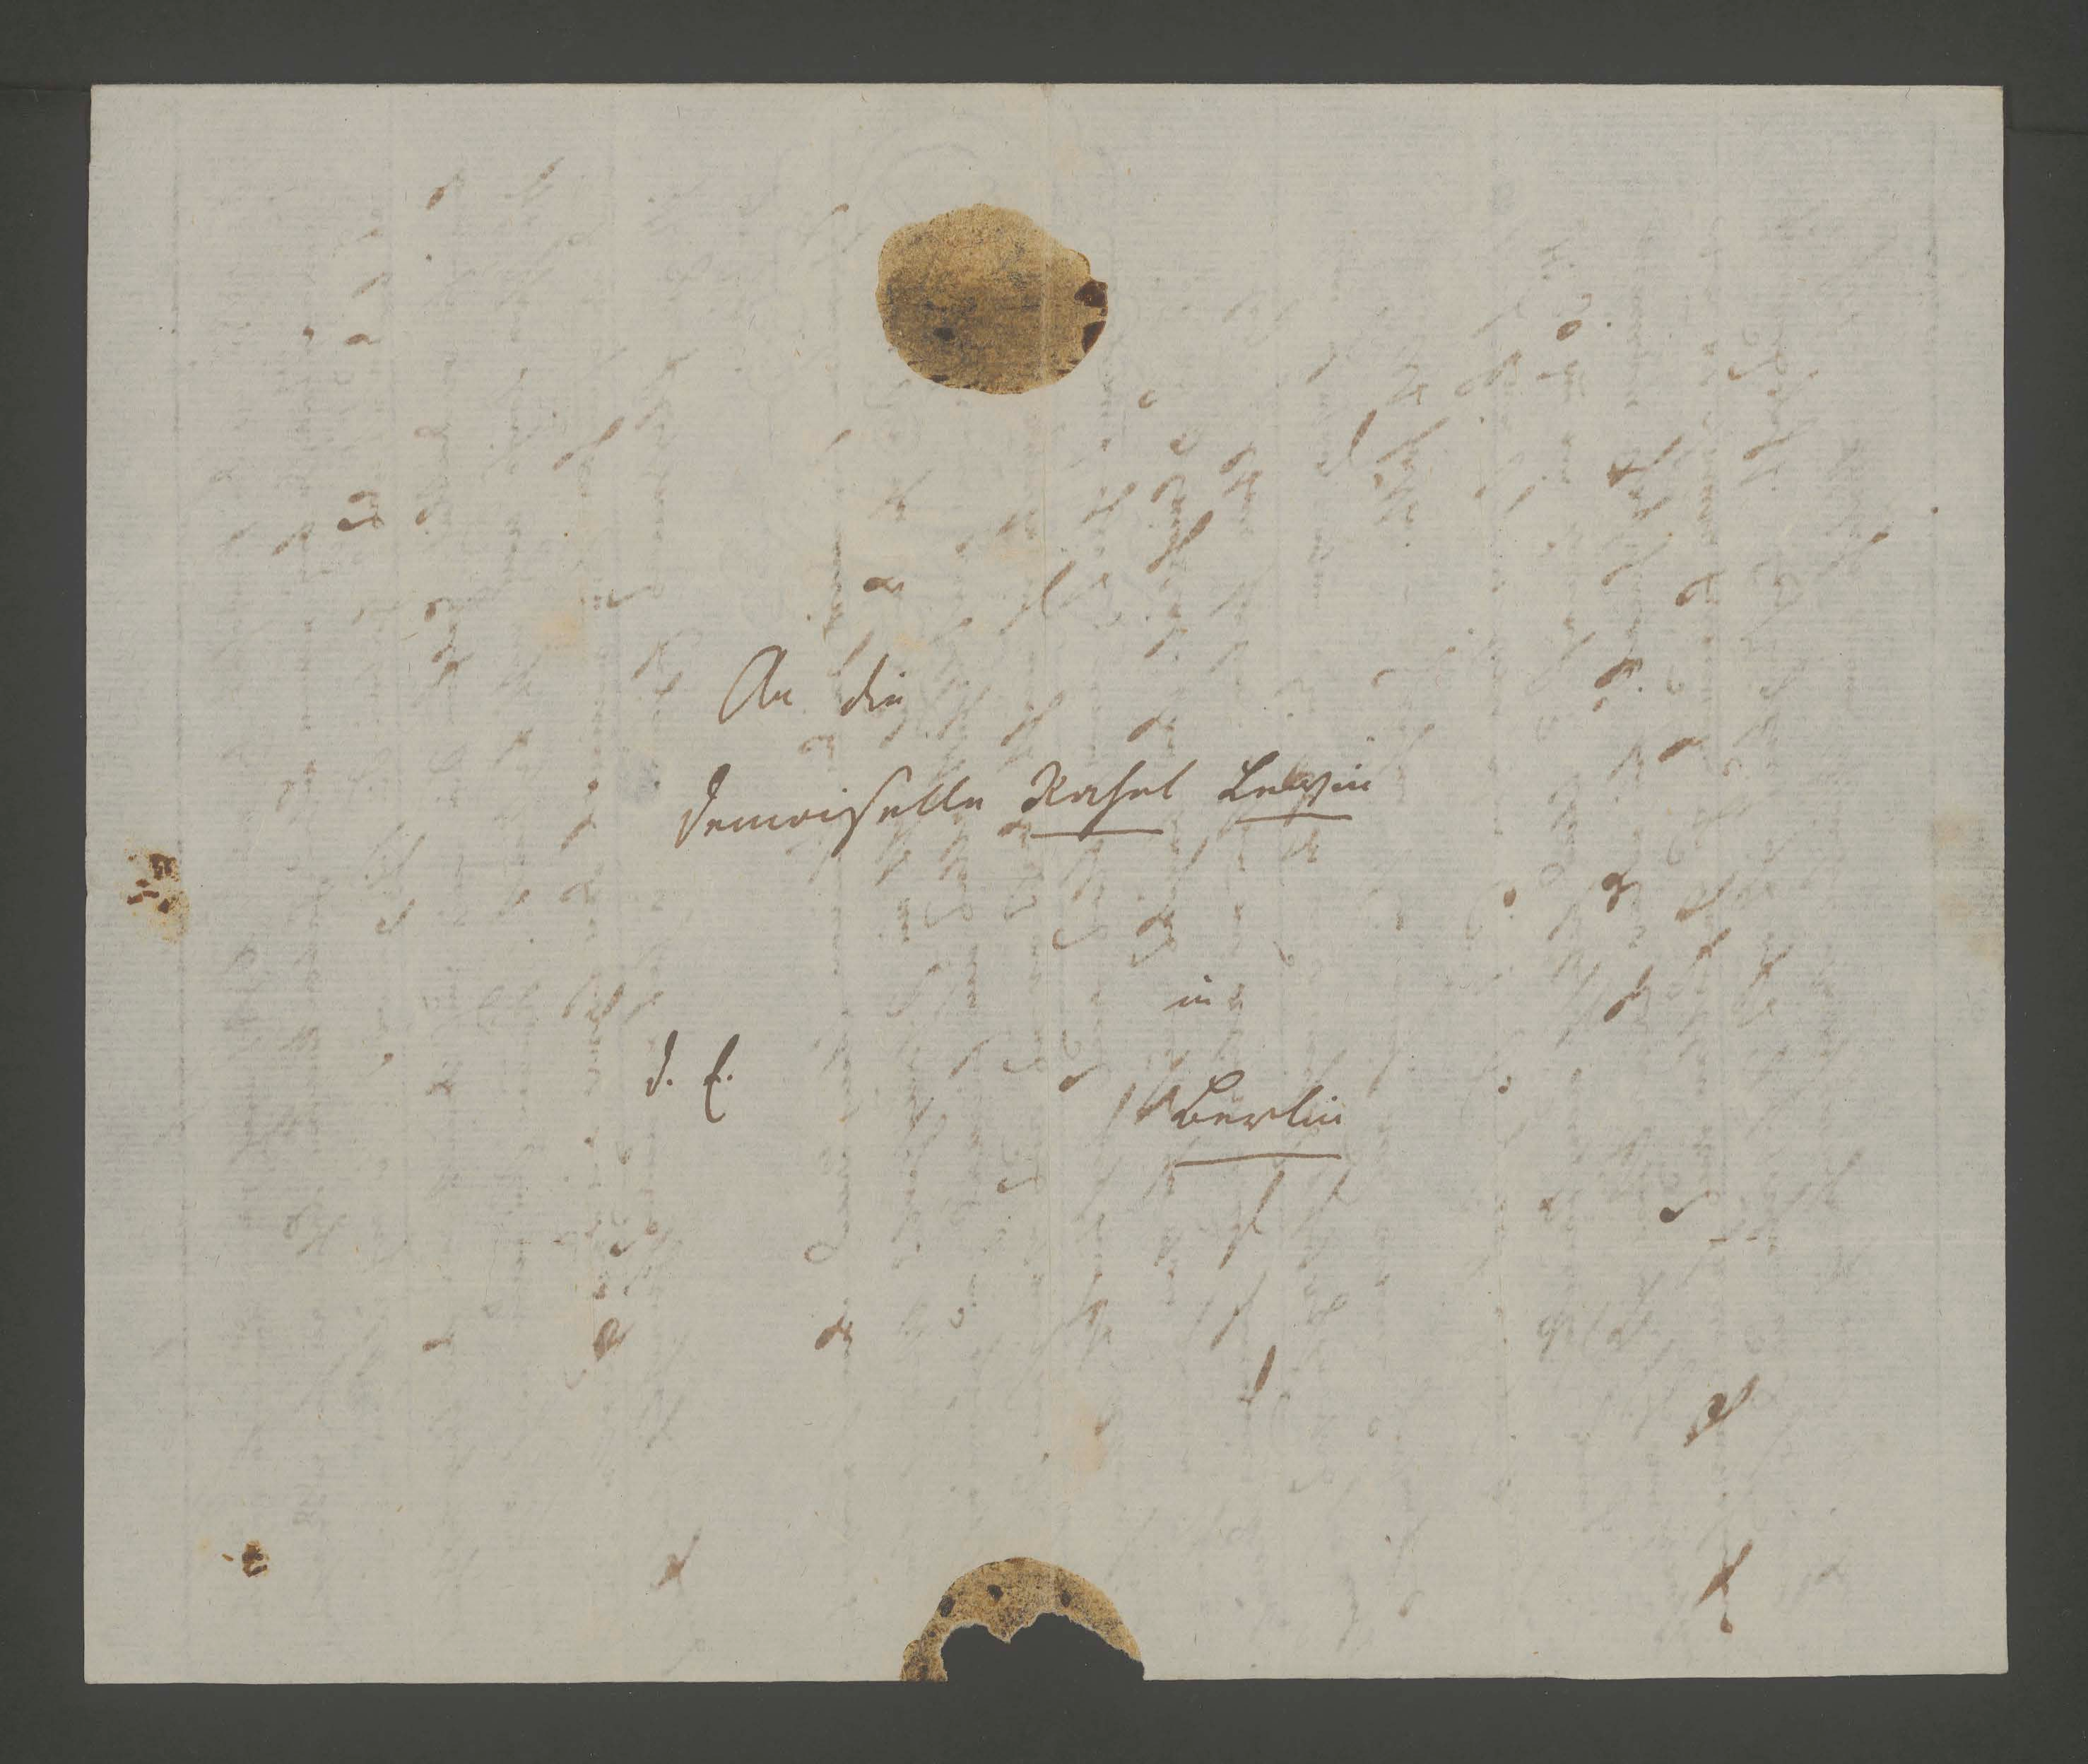 An die
Demoiselle Rahel Lewin
in
d. E.
Berlin